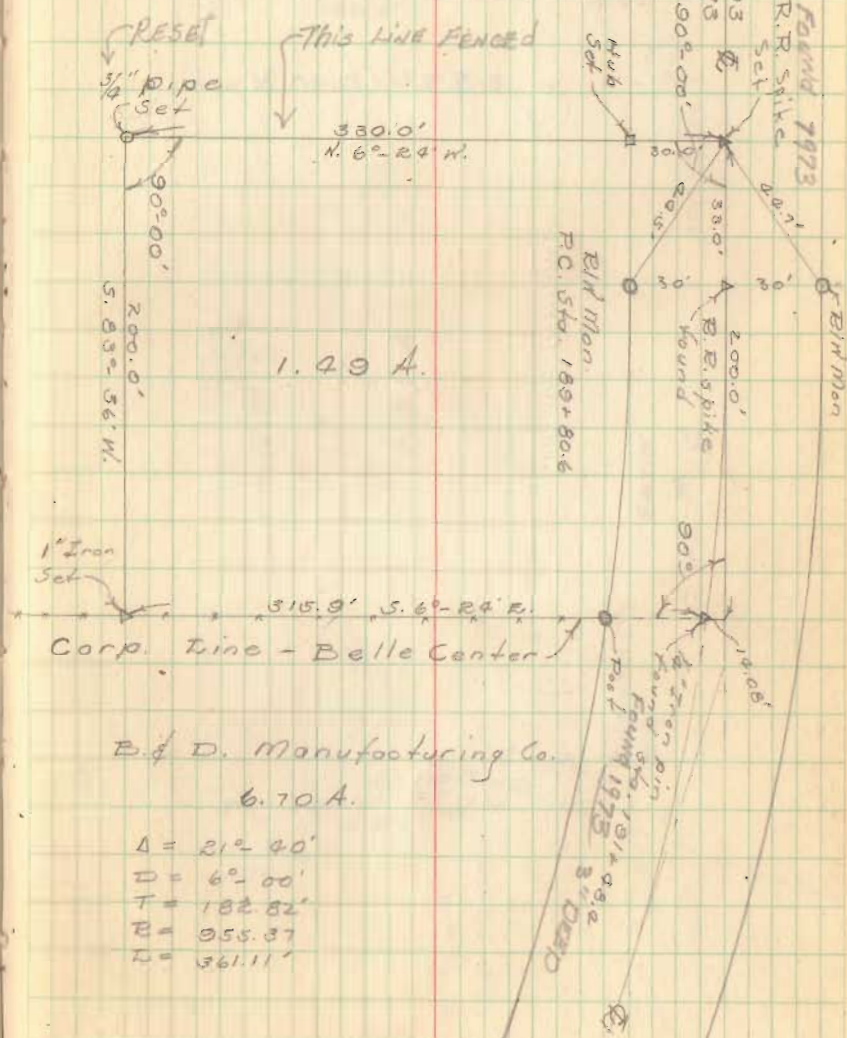 RESET
This LINE FENCED
3/4" pipe
Set
330.0'
N. 6°-24' W.
Hub
Set
30.0'
90°-00'
R.R. Spike
Set
Found 1973
90°-00'
200.0'
S. 83°-36' W.
1.49 A.
20.5'
33.0'
44.7'
30'
30'
R/W Mon
R/W Mon.
P.C. Sta. 189+80.6
R.R. spike
found
200.0'
90°
14.08'
1" Iron
Set
315.9' S. 6°-24' E.
Corp. Line - Belle Center
Post
Iron pin
found Sta.
Found 1973
3" DEEP
B. & D. Manufacturing Co.
6.70 A.
Δ = 21°-40'
D = 6°-00'
T = 182.82'
R = 955.37
L = 361.11'